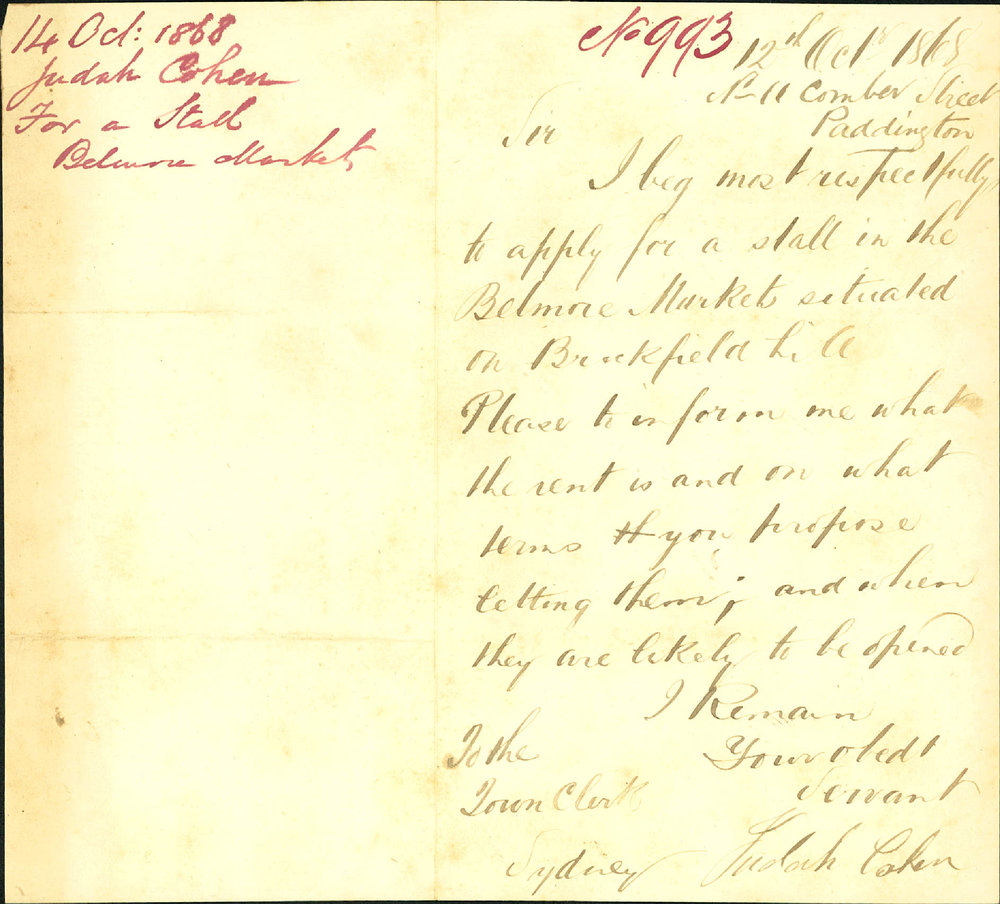 14 Oct: 1868
Judah Cohen
For a Stall
Belmore Markets
No 993
12th Octr 1868
No 11 Comber Street
Paddington
Sir
I beg most respectfully
to apply for a stall in the
Belmore Markets situated
on Brickfield hill
Please to inform me what
the rent is and on what
terms you propose
letting them; and when
they are likely to be opened
I Remain
Your obedt
Servant
Judah Cohen
To the
Town Clerk
Sydney